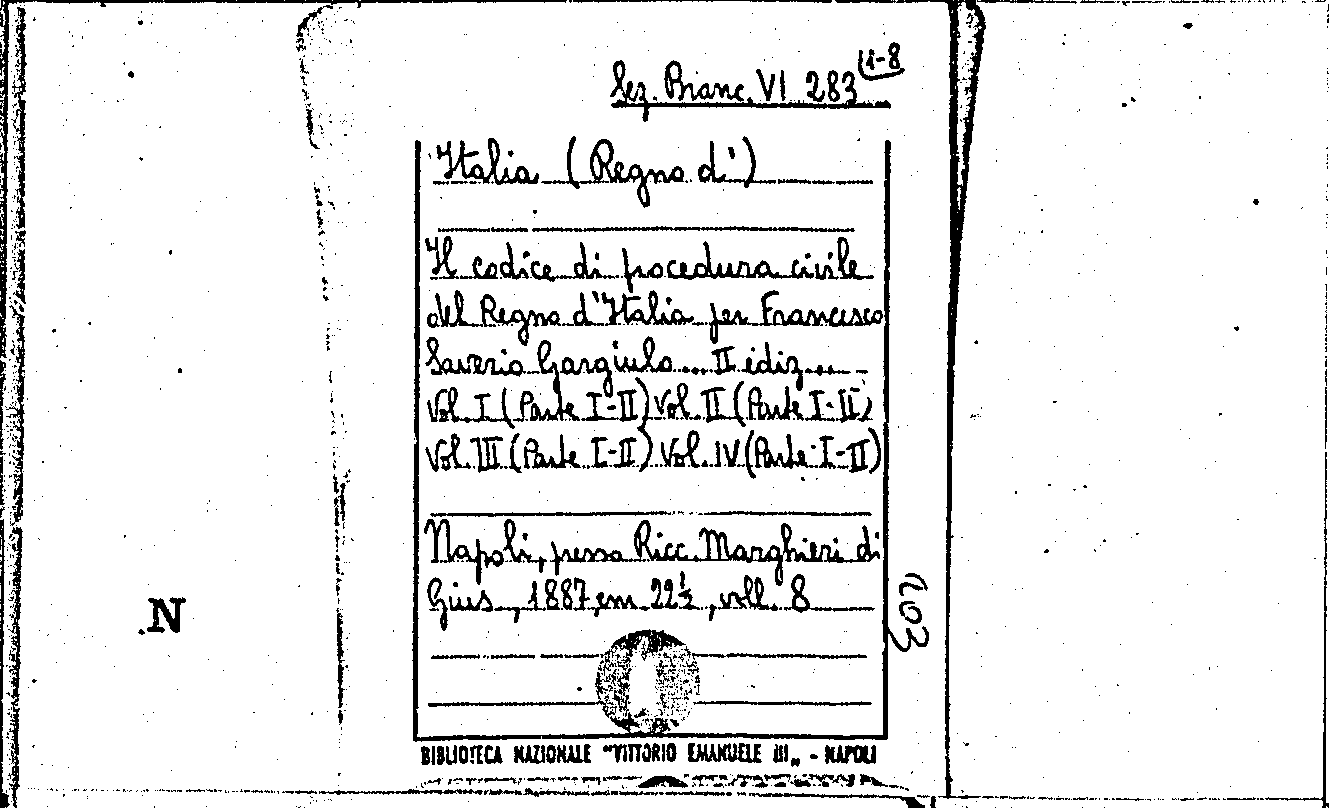 Sez. Branc. VI 283 (1-8
Italia (Regno d')
Il codice di procedura civile
del Regno d'Italia per Francesco
Saverio Gargiulo... II ediz...
Vol. I (Parte I-II) Vol. II (Parte I-II)
Vol. III (Parte I-II) Vol. IV (Parte I-II)
Napoli, presso Ricc. Marghieri di
Gius., 1887, cm. 22½, voll. 8
203
N
BIBLIOTECA NAZIONALE "VITTORIO EMANUELE III„ - NAPOLI